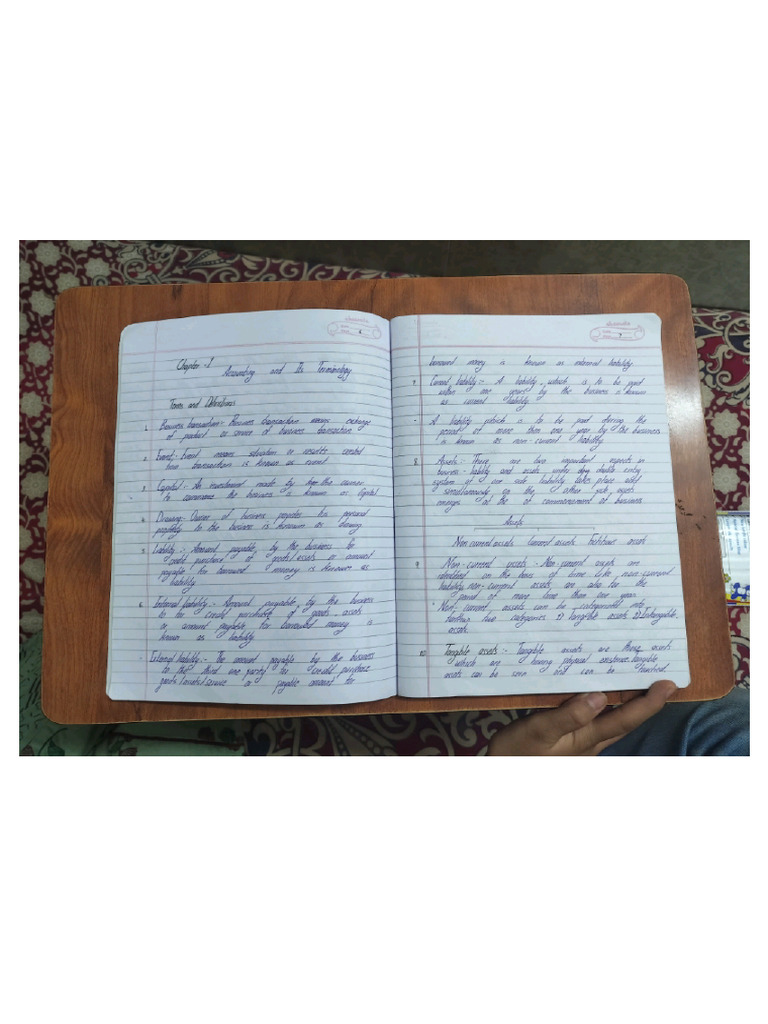 6
Chapter-1
Accounting and Its Terminology
Terms and Definitions
1. Business transaction:- Business transaction means exchange
of product or service of business transaction.
2. Event:- Event means situation or results
how transaction is known as event.
3. Capital:- An investment made by the owner
to commence the business is known as Capital
4. Drawing:- Owner of business personal
to the business is known as drawing
5. Liability:- Amount payable by the business for
credit purchase of goods/assets or amount
payable for borrowed money is known as
liability
6. Internal liability:- Amount payable by the business
to for credit purchase of goods, assets
or amount payable for borrowed money is
known as liability
- External liability:- The amount payable by the business
to the third party for credit purchase
goods/assets/service or payable amount for
7
borrowed money is known as external liability.
7. Current liability:- A liability, which is to be paid
within one years by the business is known
as current liability.
- A liability which is to be paid during the
period of more than one year by the business
is known as non-current liability
8. Assets:- There are two important aspects in
business:- liability and assets under double entry
system of one side liability takes place and
simultaneously on the other side, assets
emerge at the of commencement of business
Assets
Non current assets Current assets assets
9. Non-current assets:- Non-current assets are
on the basis of time like non-current
liability, non-current assets are also for the
period of more time than one year.
Non-current assets can be categorised into
two categories 1) Tangible assets 2) Intangible
assets
10. Tangible assets:- Tangible assets are those assets
which are having physical existence, tangible
assets can be seen and can be touched.